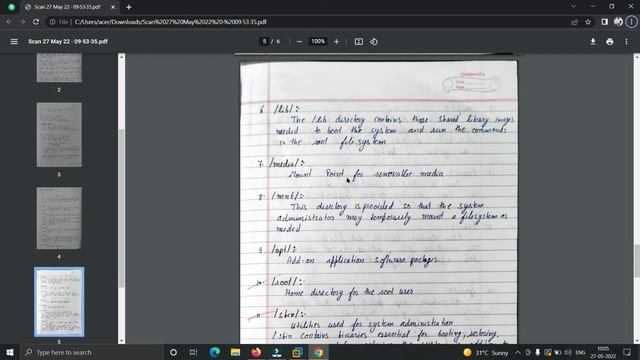 Scan 27 May 22 · 09·53·35.pdf
C:/Users/acer/Downloads/Scan%2027%20May%2022%20·%2009·53·35.pdf
Scan 27 May 22 · 09·53·35.pdf
5 / 6
100%
2
3
4
5
classmate
Date
Page
6. /lib/:
The /lib directory contains those shared library images
needed to boot the system and run the commands
in the root file system
7. /media/:
Mount Point for removable media
8. /mnt/:
This directory is provided so that the system
administrator may temporarily mount a filesystem as
needed
9. /opt/:
Add-on application software packages
10. /root/:
Home directory for the root user
11. /sbin/:
Utilities used for system administration
/sbin contains binaries essential for booting, restoring,
Type here to search
31°C Sunny
ENG
10:05
27-05-2022